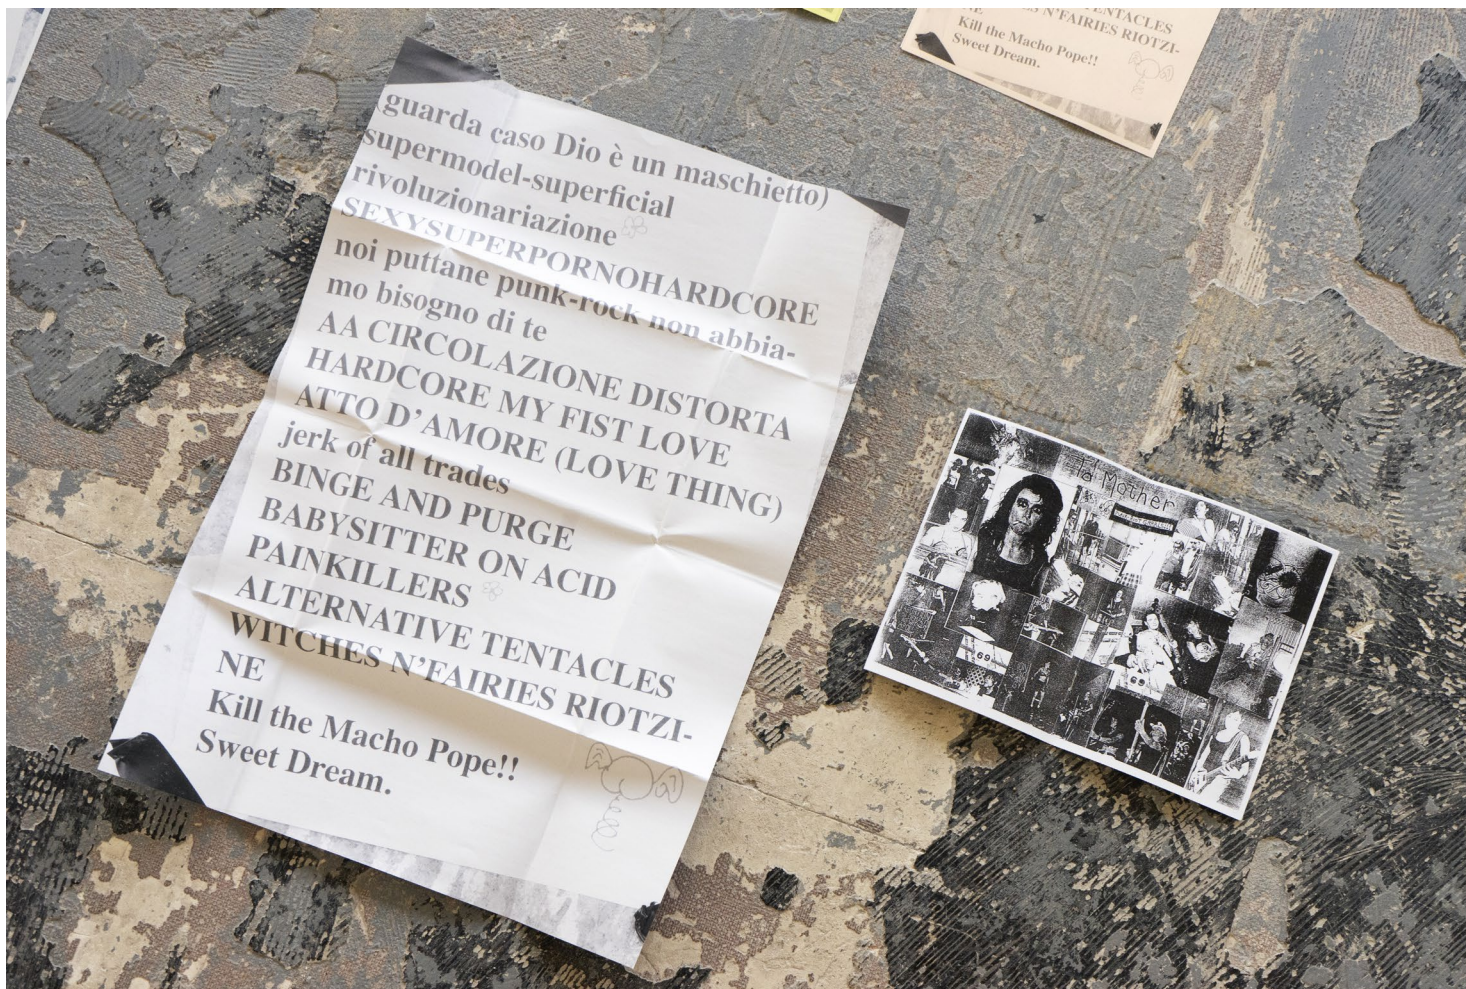 (guarda caso Dio è un maschietto)
supermodel-superficial
rivoluzionariazione
SEXYSUPERPORNOHARDCORE
noi puttane punk-rock non abbia-
mo bisogno di te
AA CIRCOLAZIONE DISTORTA
HARDCORE MY FIST LOVE
ATTO D’AMORE (LOVE THING)
jerk of all trades
BINGE AND PURGE
BABYSITTER ON ACID
PAINKILLERS
ALTERNATIVE TENTACLES
WITCHES N’FAIRIES RIOTZI-
NE
Kill the Macho Pope!!
Sweet Dream.
TENTACLES
N’FAIRIES RIOTZI-
NE
Kill the Macho Pope!!
Sweet Dream.
Mother
69
69